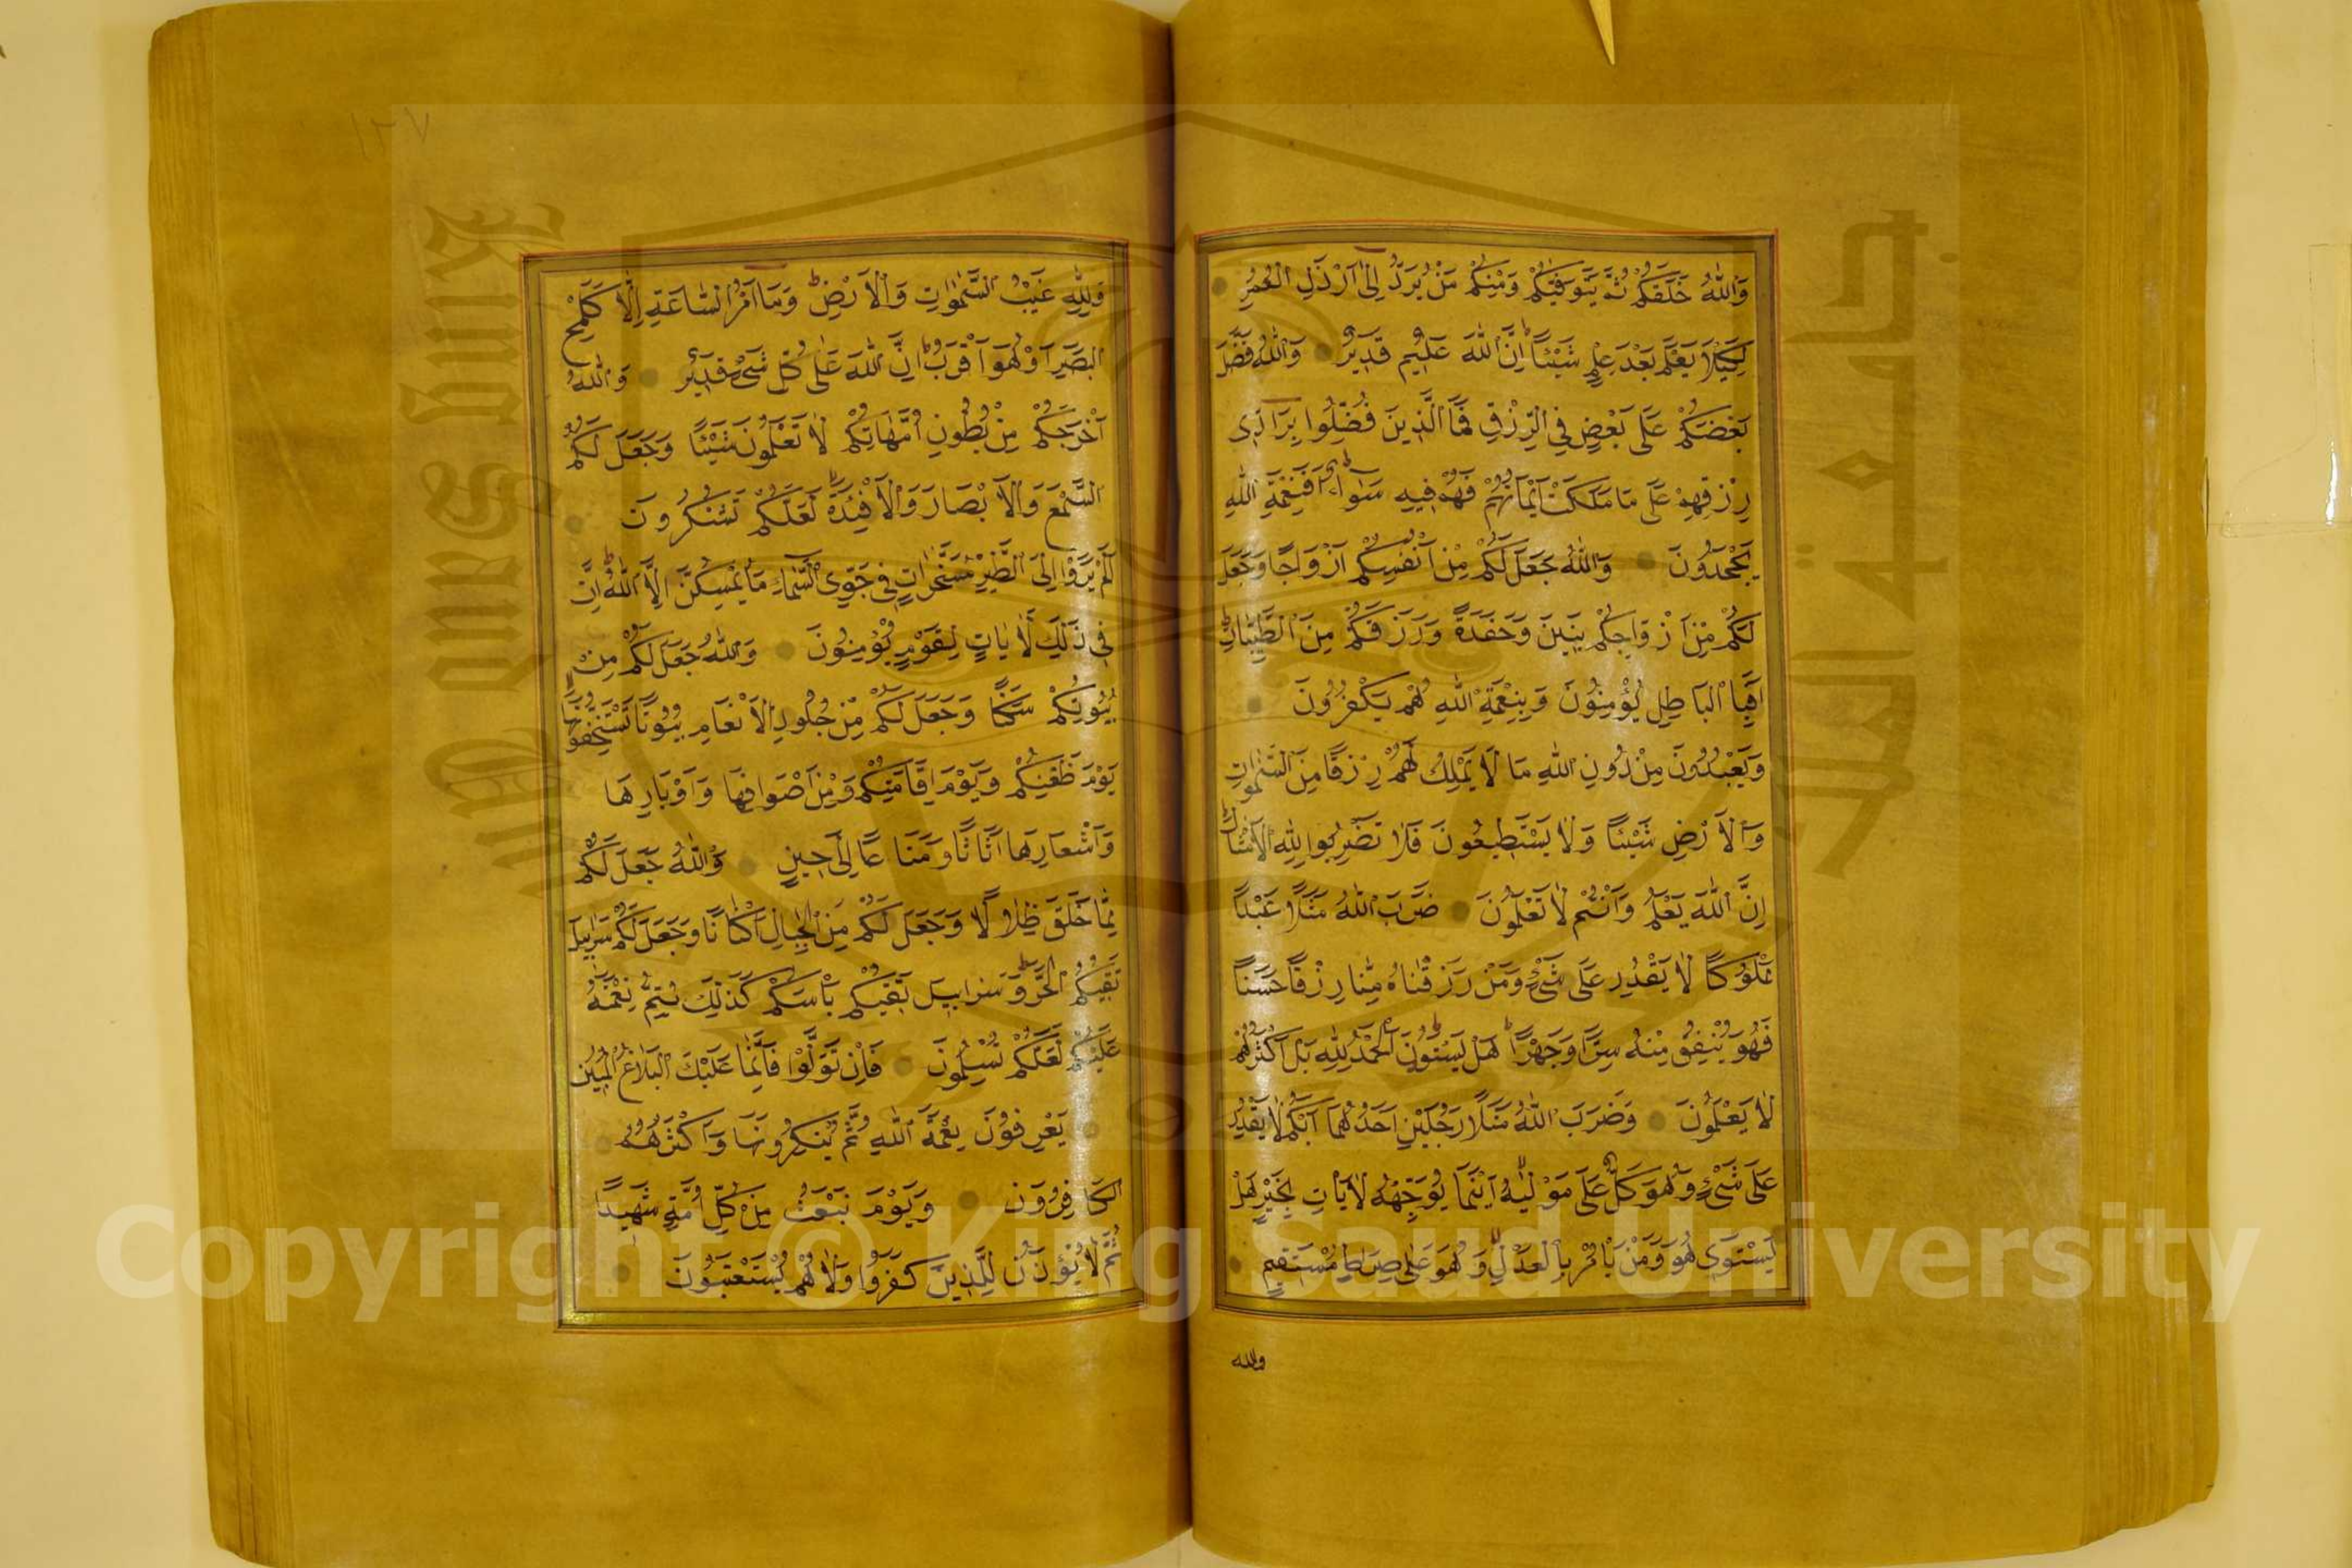 وَاللّٰهُ خَلَقَكُمْ ثُمَّ يَتَوَفّٰيكُمْ وَمِنْكُمْ مَنْ يُرَدُّ اِلٰٓى اَرْذَلِ الْعُمُرِ
لِكَيْلَا يَعْلَمَ بَعْدَ عِلْمٍ شَيْئًا اِنَّ اللّٰهَ عَلِيمٌ قَدِيرٌ وَاللّٰهُ فَضَّلَ
بَعْضَكُمْ عَلٰى بَعْضٍ فِي الرِّزْقِ فَمَا الَّذِينَ فُضِّلُوا بِرَادِّى
رِزْقِهِمْ عَلٰى مَا مَلَكَتْ اَيْمَانُهُمْ فَهُمْ فِيهِ سَوَاءٌ اَفَبِنِعْمَةِ اللّٰهِ
يَجْحَدُونَ وَاللّٰهُ جَعَلَ لَكُمْ مِنْ اَنْفُسِكُمْ اَزْوَاجًا وَجَعَلَ
لَكُمْ مِنْ اَزْوَاجِكُمْ بَنِينَ وَحَفَدَةً وَرَزَقَكُمْ مِنَ الطَّيِّبَاتِ
اَفَبِالْبَاطِلِ يُؤْمِنُونَ وَبِنِعْمَةِ اللّٰهِ هُمْ يَكْفُرُونَ
وَيَعْبُدُونَ مِنْ دُونِ اللّٰهِ مَا لَا يَمْلِكُ لَهُمْ رِزْقًا مِنَ السَّمٰوَاتِ
وَالْاَرْضِ شَيْئًا وَلَا يَسْتَطِيعُونَ فَلَا تَضْرِبُوا لِلّٰهِ الْاَمْثَالَ
اِنَّ اللّٰهَ يَعْلَمُ وَاَنْتُمْ لَا تَعْلَمُونَ ضَرَبَ اللّٰهُ مَثَلًا عَبْدًا
مَمْلُوكًا لَا يَقْدِرُ عَلٰى شَىْءٍ وَمَنْ رَزَقْنَاهُ مِنَّا رِزْقًا حَسَنًا
فَهُوَ يُنْفِقُ مِنْهُ سِرًّا وَجَهْرًا هَلْ يَسْتَوُنَ الْحَمْدُ لِلّٰهِ بَلْ اَكْثَرُهُمْ
لَا يَعْلَمُونَ وَضَرَبَ اللّٰهُ مَثَلًا رَجُلَيْنِ اَحَدُهُمَا اَبْكَمُ لَا يَقْدِرُ
عَلٰى شَىْءٍ وَهُوَ كَلٌّ عَلٰى مَوْلٰيهُ اَيْنَمَا يُوَجِّهْهُ لَا يَاْتِ بِخَيْرٍ هَلْ
يَسْتَوِى هُوَ وَمَنْ يَاْمُرُ بِالْعَدْلِ وَهُوَ عَلٰى صِرَاطٍ مُسْتَقِيمٍ
ولله
١٢٧
وَلِلّٰهِ غَيْبُ السَّمٰوَاتِ وَالْاَرْضِ وَمَا اَمْرُ السَّاعَةِ اِلَّا كَلَمْحِ
الْبَصَرِ اَوْ هُوَ اَقْرَبُ اِنَّ اللّٰهَ عَلٰى كُلِّ شَىْءٍ قَدِيرٌ وَاللّٰهُ
اَخْرَجَكُمْ مِنْ بُطُونِ اُمَّهَاتِكُمْ لَا تَعْلَمُونَ شَيْئًا وَجَعَلَ لَكُمُ
السَّمْعَ وَالْاَبْصَارَ وَالْاَفْئِدَةَ لَعَلَّكُمْ تَشْكُرُونَ
اَلَمْ يَرَوْا اِلَى الطَّيْرِ مُسَخَّرَاتٍ فِى جَوِّ السَّمَاءِ مَا يُمْسِكُهُنَّ اِلَّا اللّٰهُ اِنَّ
فِى ذٰلِكَ لَاٰيَاتٍ لِقَوْمٍ يُؤْمِنُونَ وَاللّٰهُ جَعَلَ لَكُمْ مِنْ
بُيُوتِكُمْ سَكَنًا وَجَعَلَ لَكُمْ مِنْ جُلُودِ الْاَنْعَامِ بُيُوتًا تَسْتَخِفُّونَهَا
يَوْمَ ظَعْنِكُمْ وَيَوْمَ اِقَامَتِكُمْ وَمِنْ اَصْوَافِهَا وَاَوْبَارِهَا
وَاَشْعَارِهَا اَثَاثًا وَمَتَاعًا اِلٰى حِينٍ وَاللّٰهُ جَعَلَ لَكُمْ
مِمَّا خَلَقَ ظِلَالًا وَجَعَلَ لَكُمْ مِنَ الْجِبَالِ اَكْنَانًا وَجَعَلَ لَكُمْ سَرَابِيلَ
تَقِيكُمُ الْحَرَّ وَسَرَابِيلَ تَقِيكُمْ بَاْسَكُمْ كَذٰلِكَ يُتِمُّ نِعْمَتَهُ
عَلَيْكُمْ لَعَلَّكُمْ تُسْلِمُونَ فَاِنْ تَوَلَّوْا فَاِنَّمَا عَلَيْكَ الْبَلَاغُ الْمُبِينُ
يَعْرِفُونَ نِعْمَةَ اللّٰهِ ثُمَّ يُنْكِرُونَهَا وَاَكْثَرُهُمُ
الْكَافِرُونَ وَيَوْمَ نَبْعَثُ مِنْ كُلِّ اُمَّةٍ شَهِيدًا
ثُمَّ لَا يُؤْذَنُ لِلَّذِينَ كَفَرُوا وَلَا هُمْ يُسْتَعْتَبُونَ
King Saud University
جامعة الملك
Copyright © King Saud University